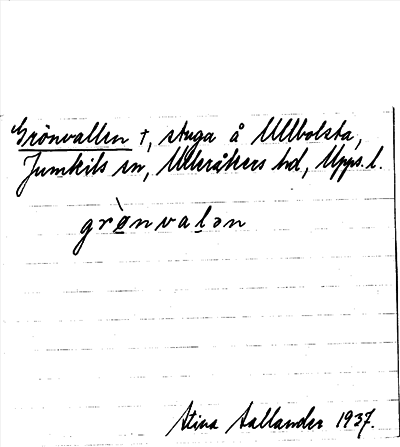 Grönvallen †, stuga å Ullbolsta,
Jumkils sn, Ulleråkers hd, Upps. l.
grø̀nvalən
Stina Hallander 1937.